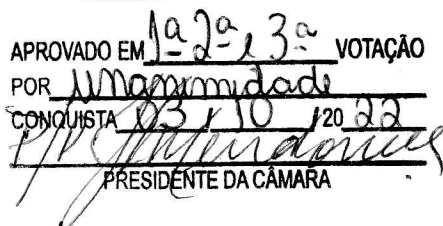 APROVADO EM 1ª 2ª e 3ª VOTAÇÃO
POR Unanimidade
CONQUISTA 03 / 10 / 20 22
P/P Mendonça
PRESIDENTE DA CÂMARA